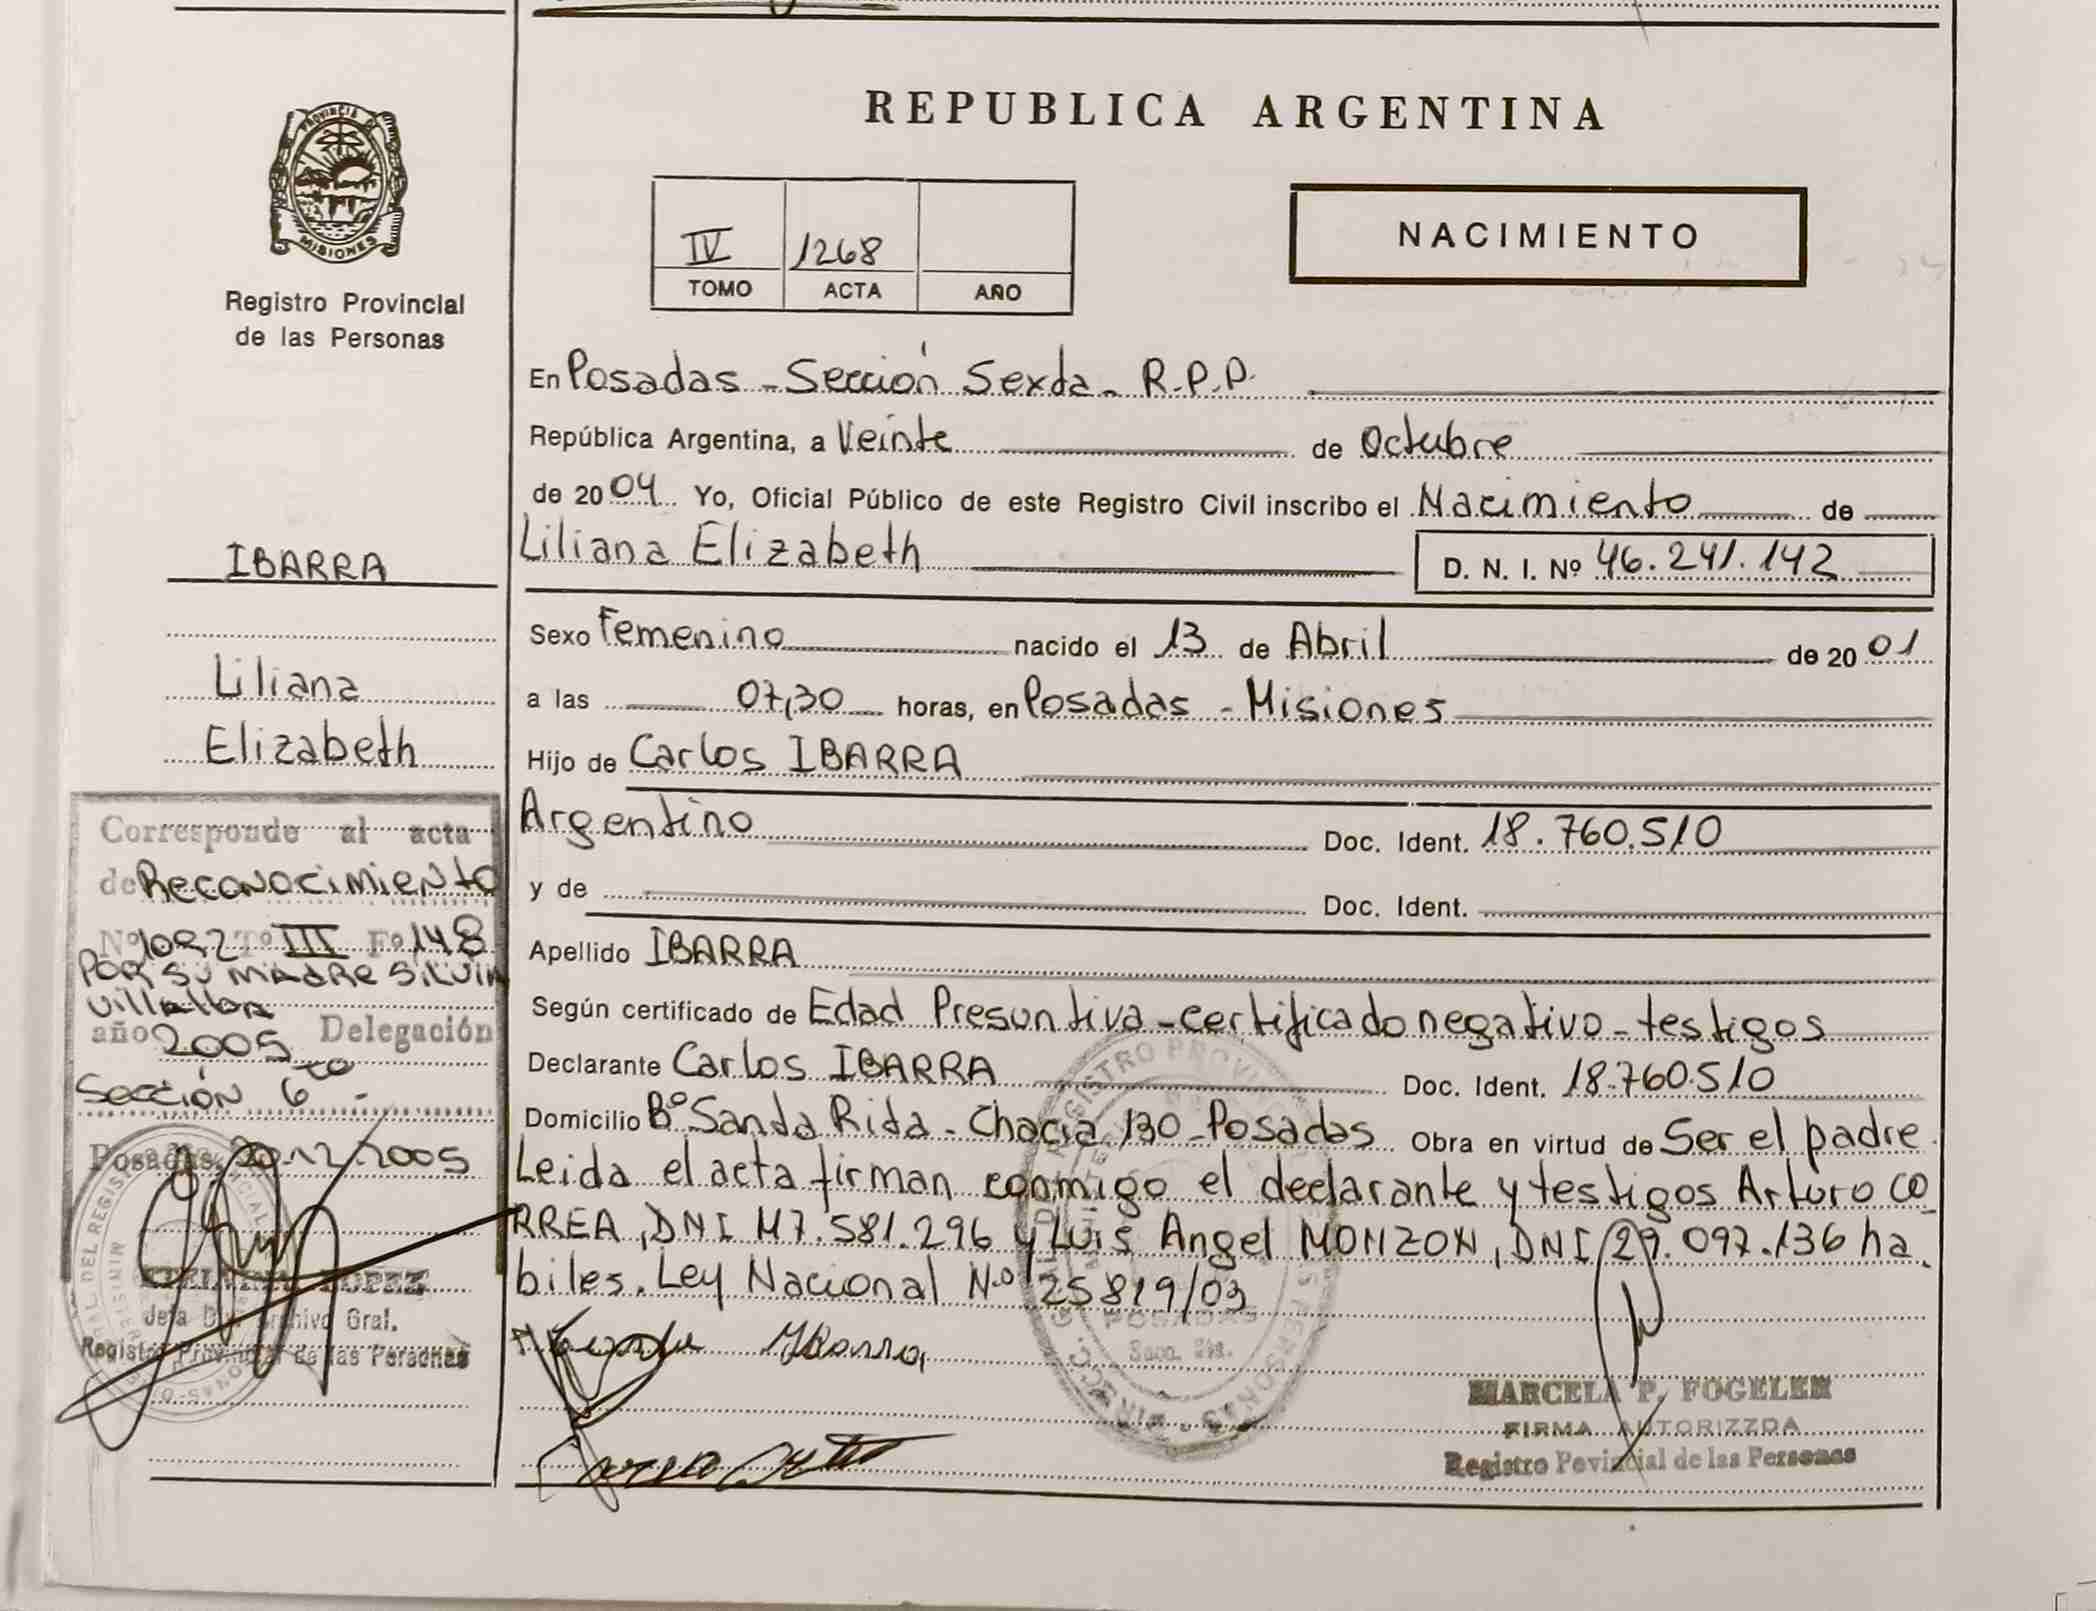 REPUBLICA ARGENTINA
PROVINCIA DE
MISIONES
Registro Provincial
de las Personas
IV 1268
TOMO ACTA AÑO
NACIMIENTO
En Posadas - Sección Sexta - R.P.P.
República Argentina, a Veinte de Octubre
de 2004 Yo, Oficial Público de este Registro Civil inscribo el Nacimiento de
Liliana Elizabeth D. N. I. Nº 46.241.142
Sexo Femenino nacido el 13 de Abril de 2001
a las 07,30 horas, en Posadas - Misiones
Hijo de Carlos IBARRA
Argentino Doc. Ident. 18.760.510
y de Doc. Ident.
Apellido IBARRA
Según certificado de Edad Presuntiva - certificado negativo - testigos
Declarante Carlos IBARRA Doc. Ident. 18.760.510
Domicilio Bº Santa Rita - Chacra 130 - Posadas Obra en virtud de Ser el padre.
Leida el acta firman conmigo el declarante y testigos Arturo CO
RREA, DNI M7.581.296 y Luis Angel MONZON, DNI 29.097.136 ha
biles. Ley Nacional Nº 25819/03
IBARRA
Liliana
Elizabeth
Corresponde al acta
de Reconocimiento
Nº 1092 Tº III Fº 148
POR SU MADRE SILVIA
Villalba
año 2005 Delegación
Sección 6ta -
Posadas, 20.12.2005
LOPEZ
Jefa Div. Archivo Gral.
Registro Provincial de las Personas
Ibarra
POSADAS
MARCELA P. FOGELER
FIRMA AUTORIZZDA
Registro Povincial de las Personas